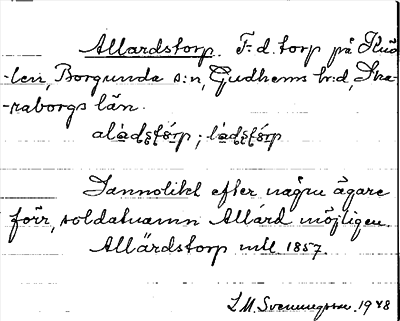 Allardstorp. F. d. torp på Kus-
-len, Borgunda s:n, Gudhems hr:d, Ska-
-raborgs län.
Sannolikt efter några ägare
förr, soldatnamn Allard möjligen.
Allärdstorp mtl 1857.
L. M. Svenungsson. 1948